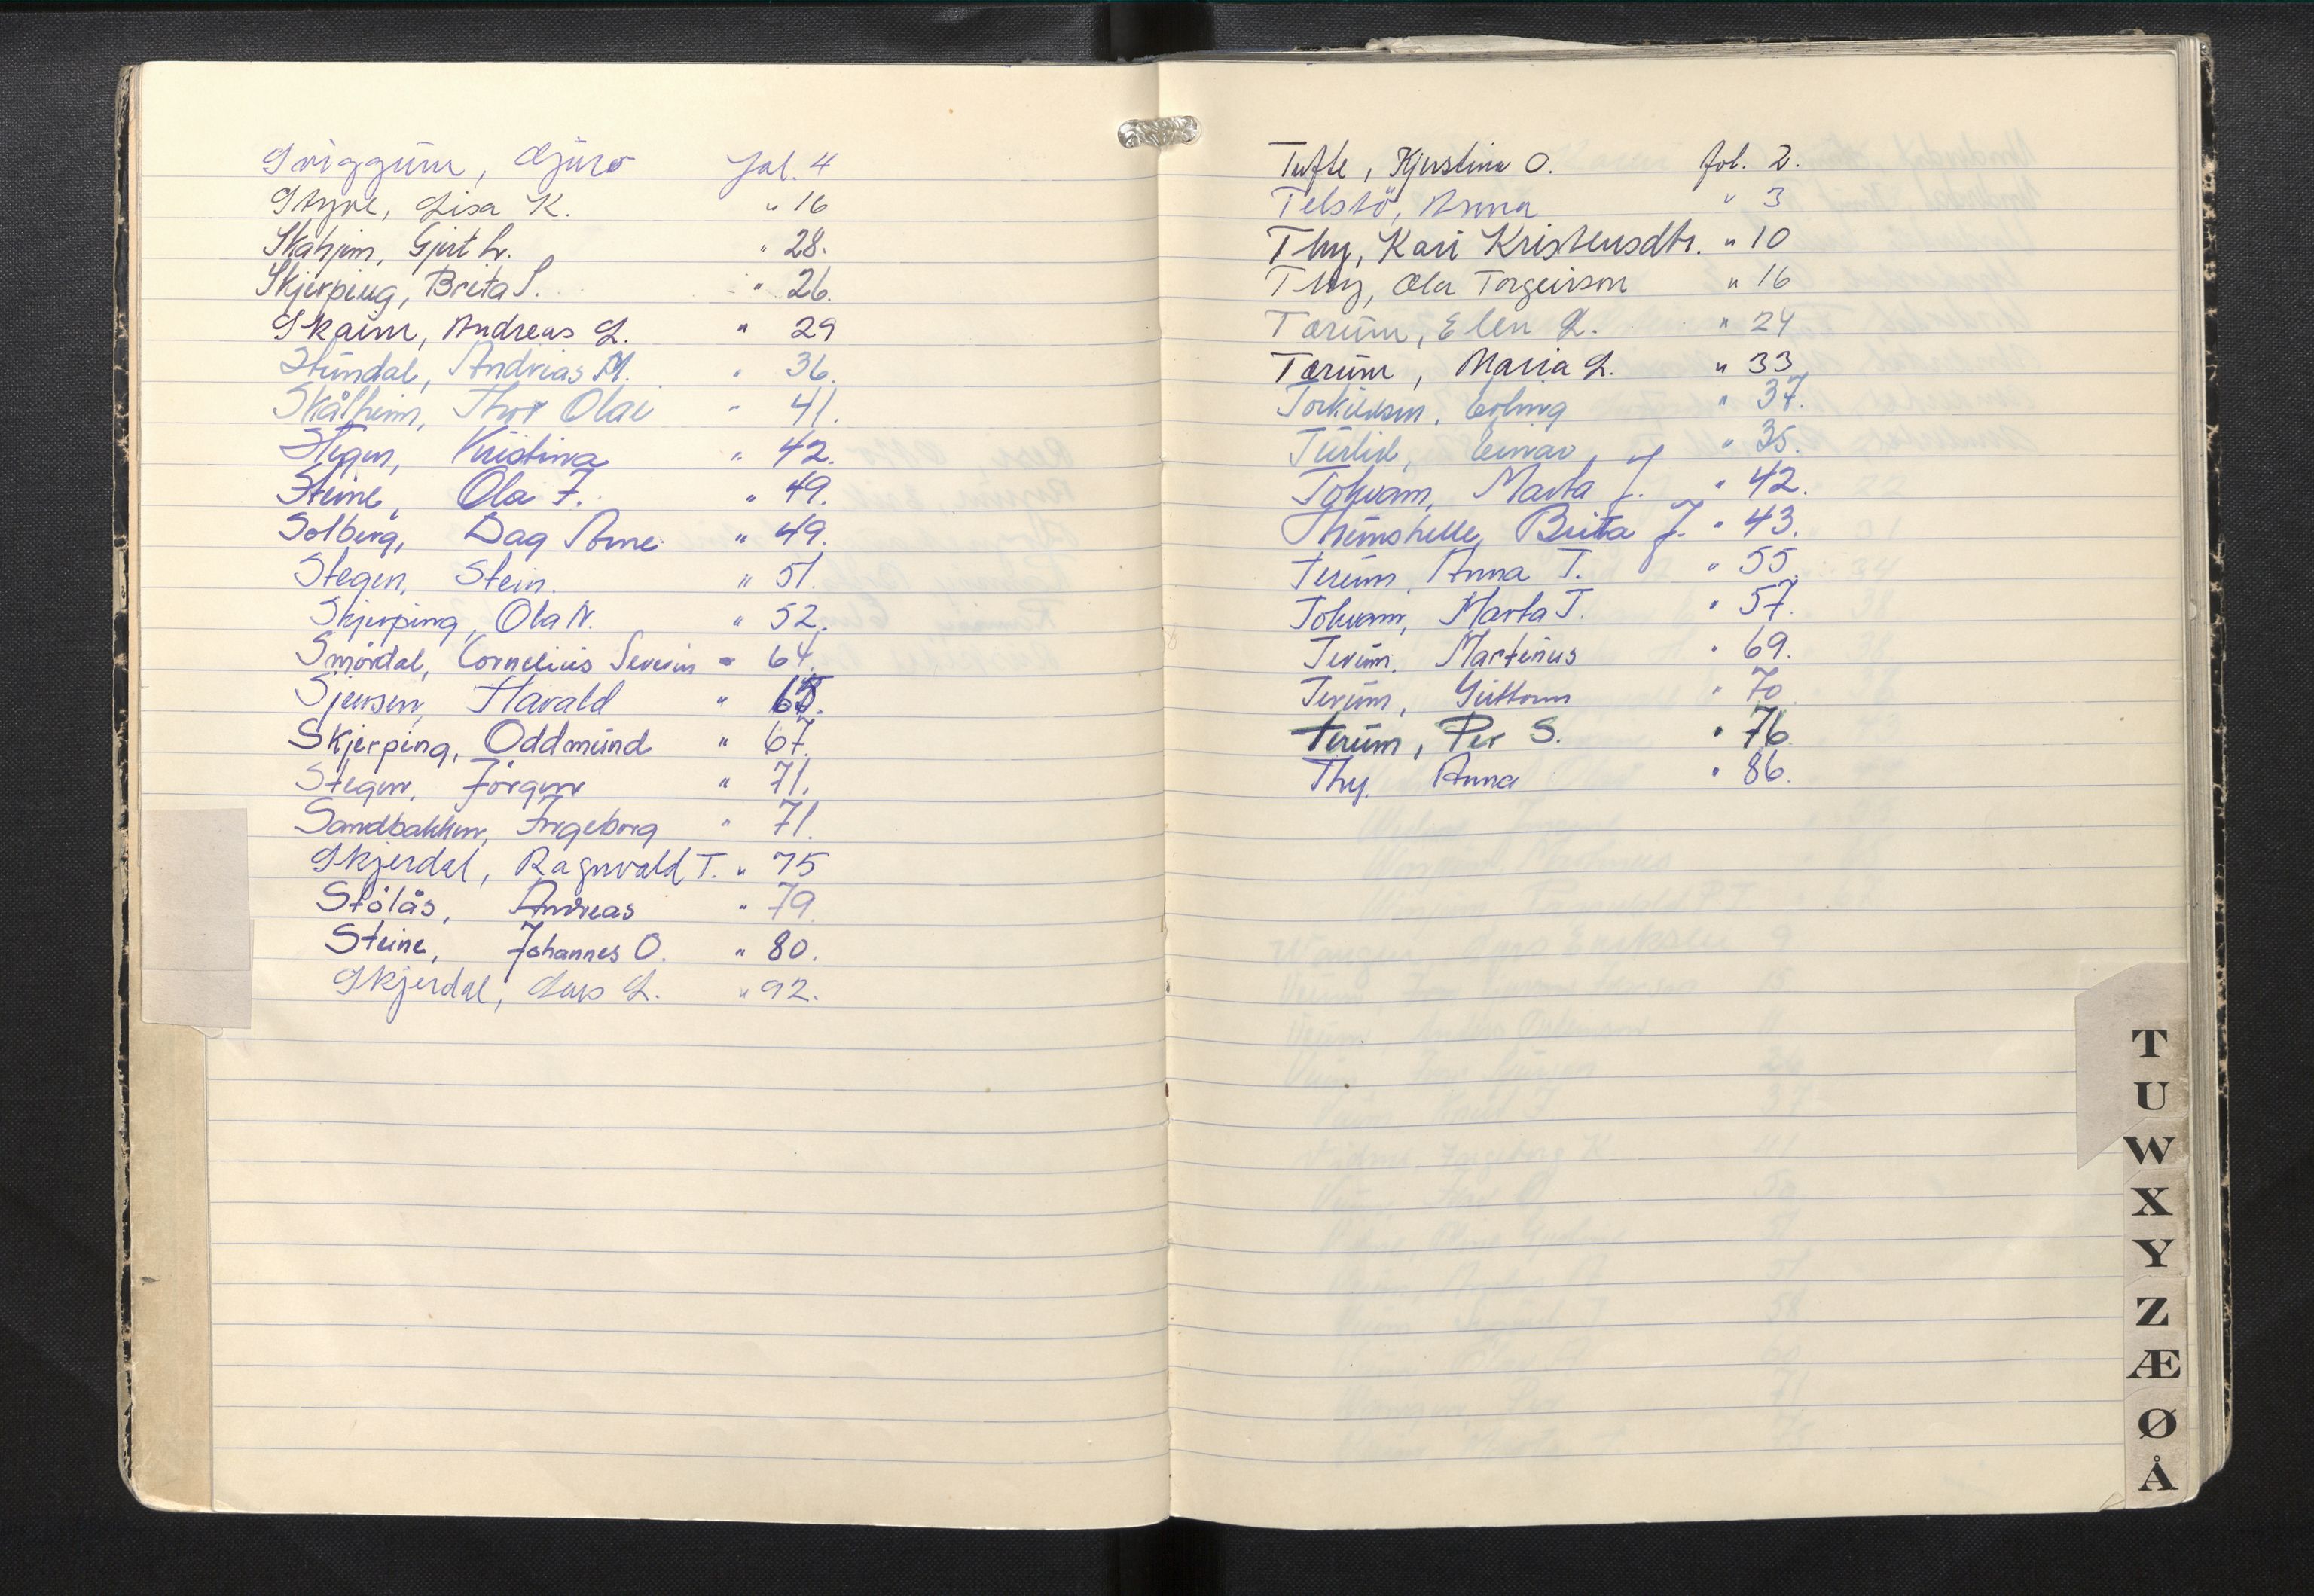 Sviggüm, Gjüro fol. 4
Styve, Lisa K. " 16
Skahjem, Gjert L. " 28.
Skjerping, Brita S. " 26.
Skaim, Andreas L. " 29
Stündal, Andreas M. " 36.
Skålheim, Thor Olai " 41.
Stegen, Kristina " 42.
Steine, Ola J. " 49.
Solberg, Dag Arne " 49.
Stegen, Stein. " 51.
Skjerping, Ola N. " 52.
Smördal, Cornelius Severin " 64.
Sjensen, Harald " 65.
Skjerping, Oddmünd " 67.
Stegen, Jörgen " 71.
Sandbakken, Ingeborg " 71.
Skjerdal, Ragnvald T. " 75
Stölås, Andreas " 79.
Steine, Johannes O. " 80.
Skjerdal, Lars L. " 92.
Tufte, Kjerstina O. fol. 2.
Telstö, Anna " 3
Thy, Kari Kristensdtr. " 10
Thy, Ola Torgeirson " 16
Tærüm, Elen L. " 24
Tærüm, Maria L. " 33
Torkildsen, Erling " 37.
Türlid, Einar " 35.
Tokvam, Marta J. " 42.
Thümshelle, Brita J. " 43.
Terüm, Anna T. " 55.
Tokvam, Marta T. " 57.
Terüm, Martinus " 69.
Terüm, Güttorm " 70
Terüm, Per S. " 76
Thy. Anna " 86.
T
U
W
X
Y
Z
Æ
Ø
Å